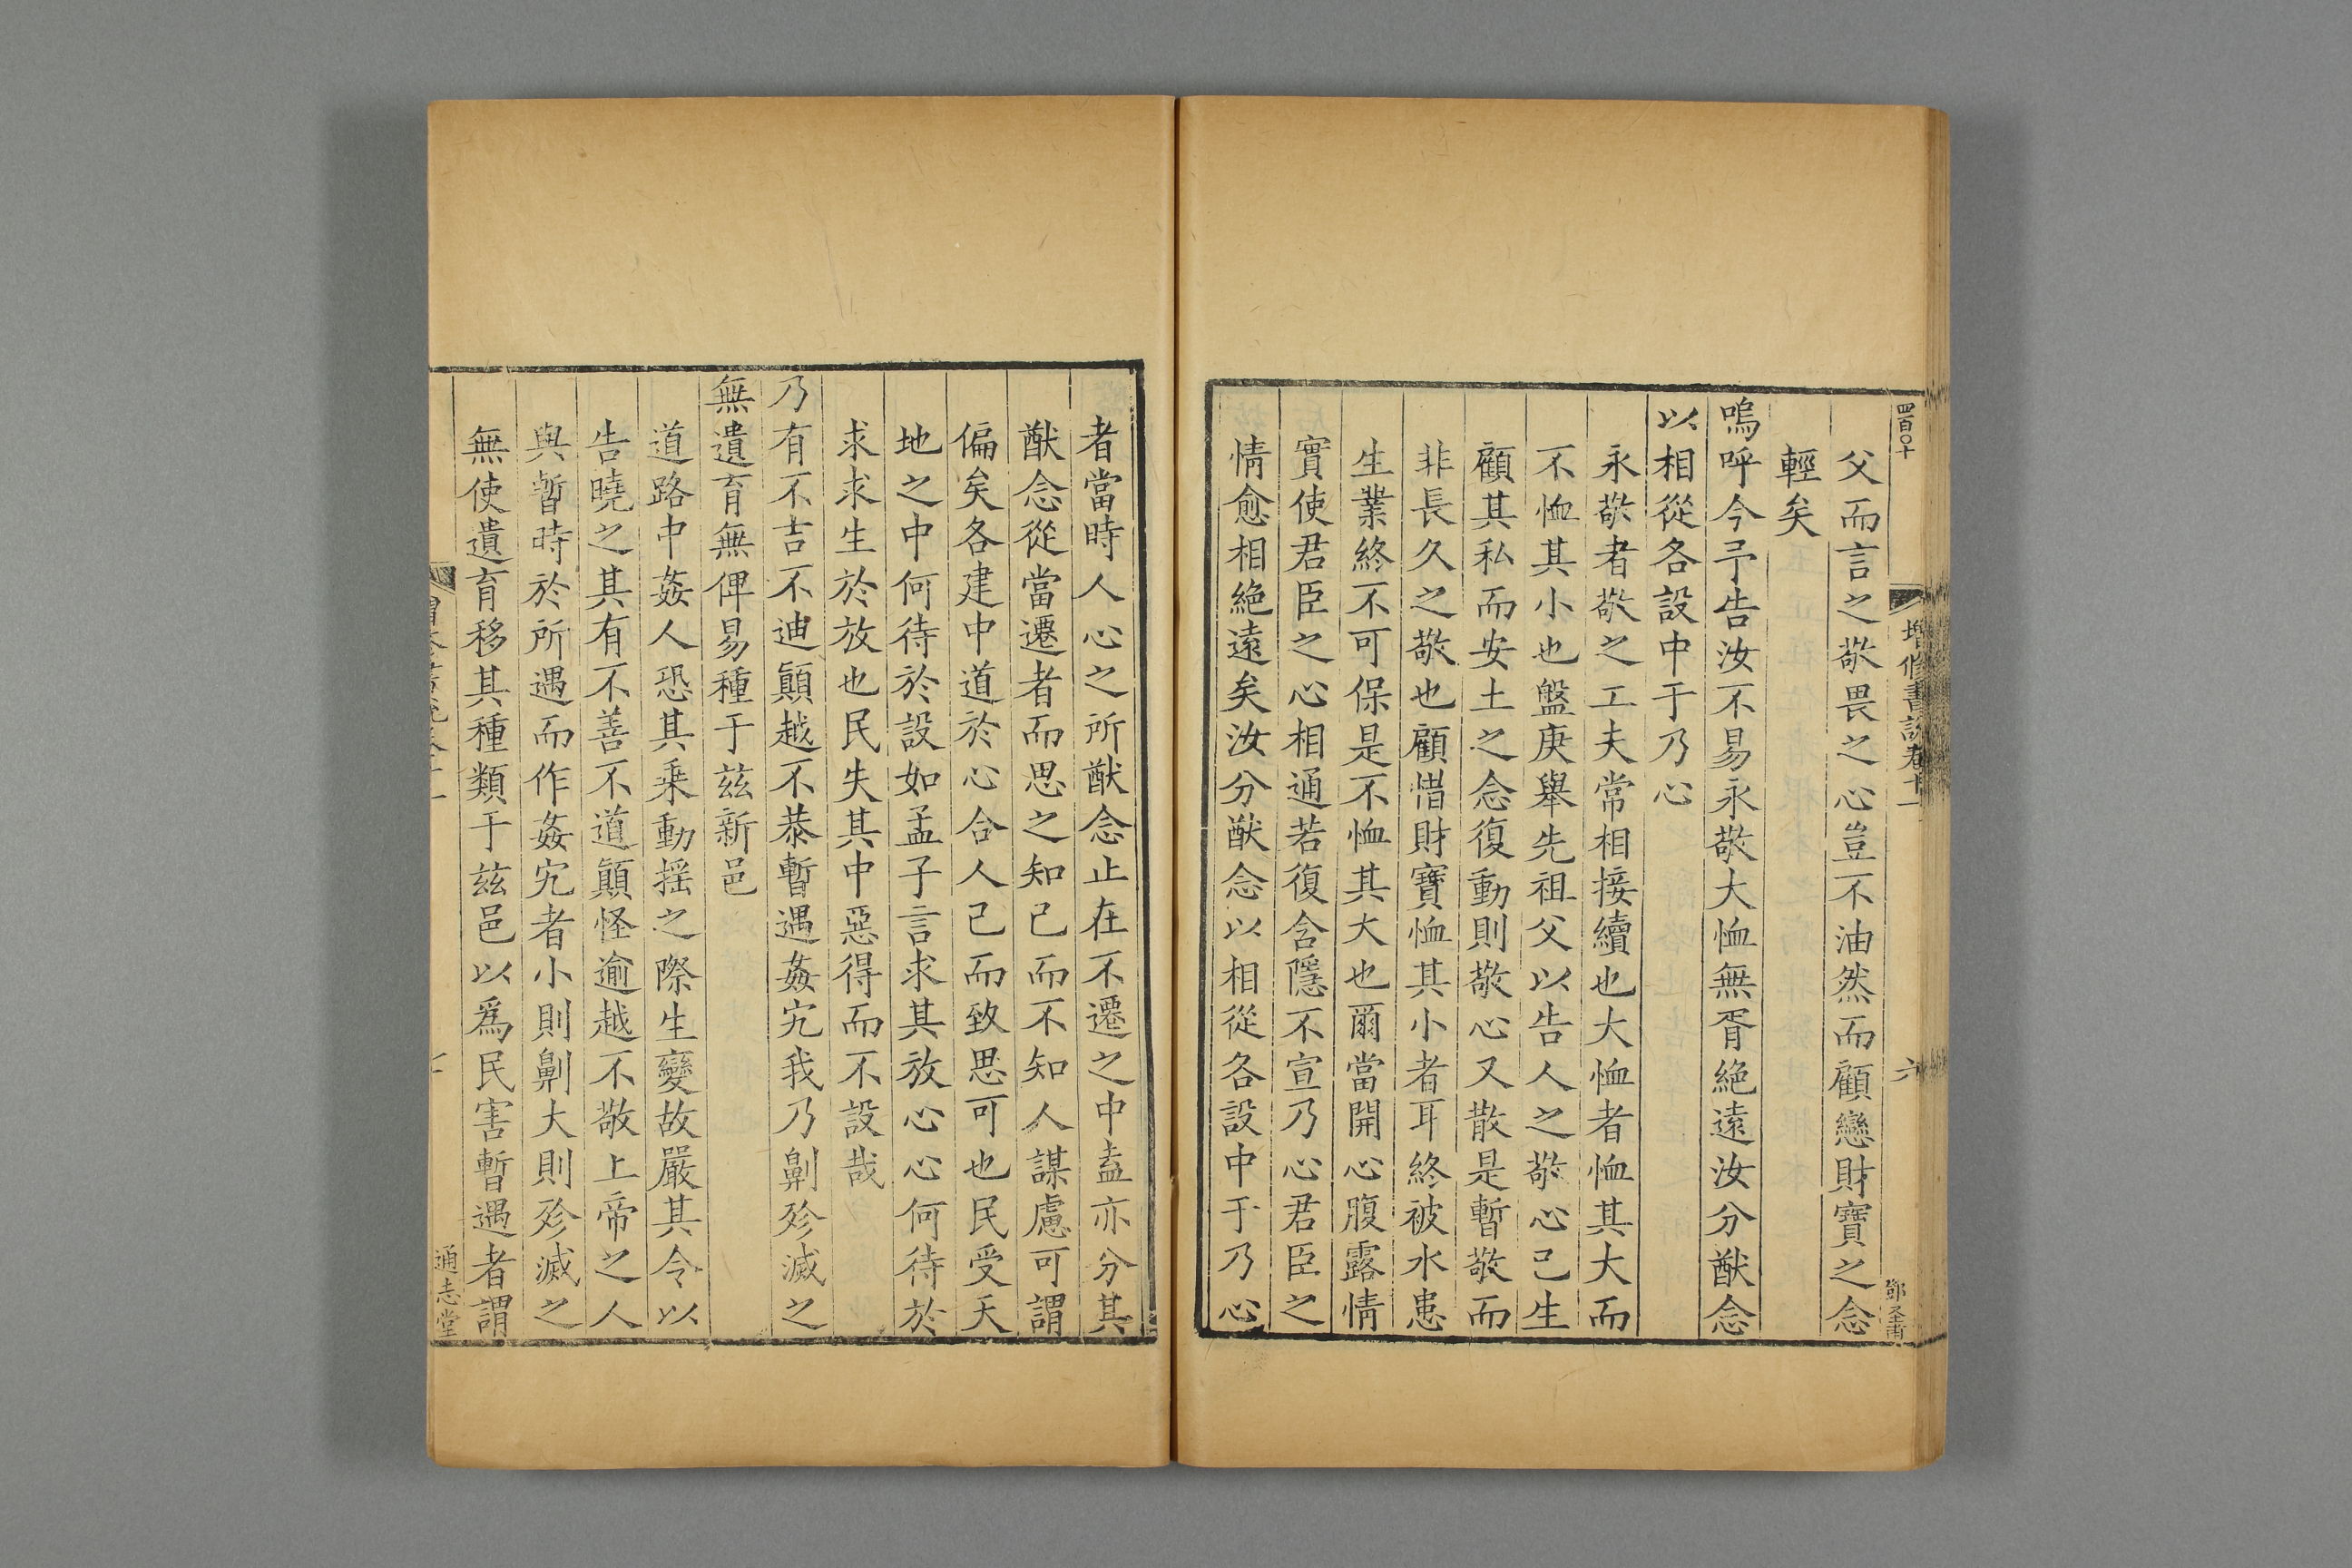 四百〇十
增修書說卷十一
六
父而言之敬畏之心豈不油然而顧戀財寶之念
輕矣
嗚呼今予告汝不易永敬大恤無胥絕遠汝分猷念
以相從各設中于乃心
永敬者敬之工夫常相接續也大恤者恤其大而
不恤其小也盤庚舉先祖父以告人之敬心已生
顧其私而安土之念復動則敬心又散是暫敬而
非長久之敬也顧惜財寶恤其小者耳終被水患
生業終不可保是不恤其大也爾當開心腹露情
實使君臣之心相通若復含隱不宣乃心君臣之
情愈相絕遠矣汝分猷念以相從各設中于乃心
者當時人心之所猷念止在不遷之中盍亦分其
猷念從當遷者而思之知己而不知人謀慮可謂
偏矣各建中道於心合人己而致思可也民受天
地之中何待於設如孟子言求其放心心何待於
求求生於放也民失其中惡得而不設哉
乃有不吉不迪顛越不恭暫遇姦宄我乃劓殄滅之
無遺育無俾易種于茲新邑
道路中姦人恐其乘動搖之際生變故嚴其令以
告曉之其有不善不道顛怪逾越不敬上帝之人
與暫時於所遇而作姦宄者小則劓大則殄滅之
無使遺育移其種類于茲邑以爲民害暫遇者謂
通志堂